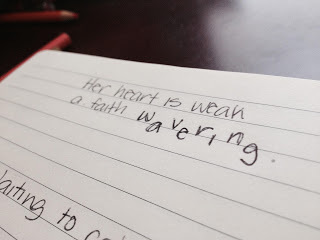 Her heart is weak
a faith wavering.
waiting to